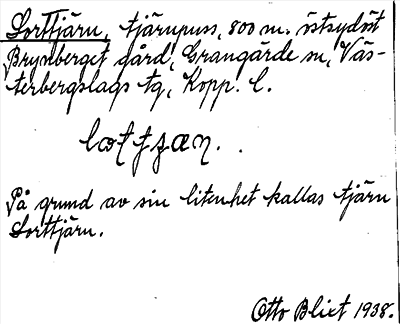 Lorttjärn, tjärnpuss, 800 m. östsydöst
Brynberget gård, Grangärde sn, Väs-
terbergslags tg, Kopp. l.
På grund av sin litenhet kallas tjärn
Lorttjärn.
Otto Blixt 1938.